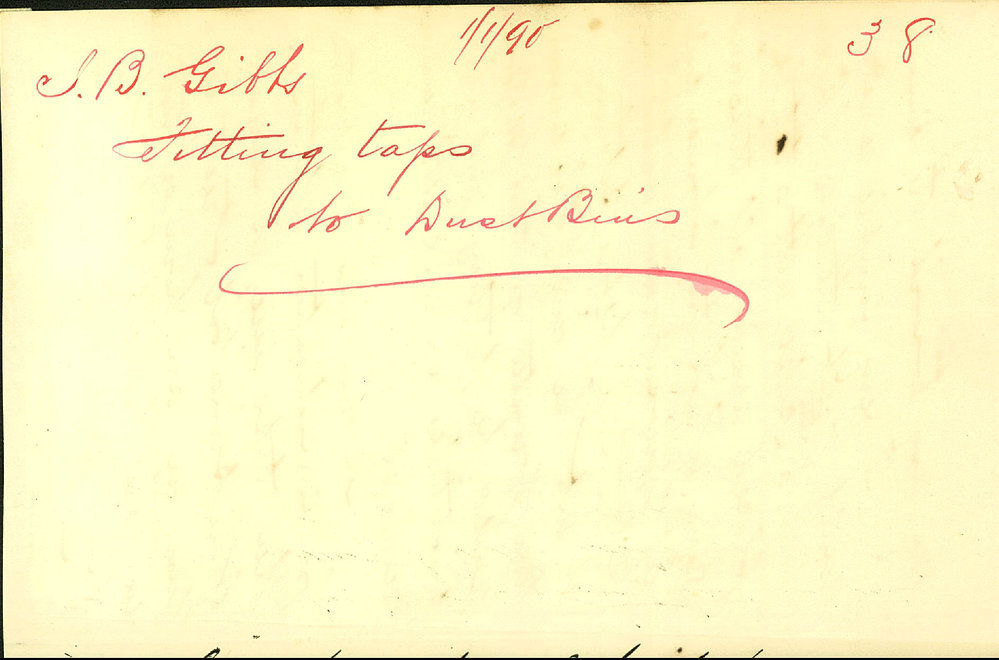 1/1/90
38
J. B. Gibbs
Fitting taps
to Dust Bins